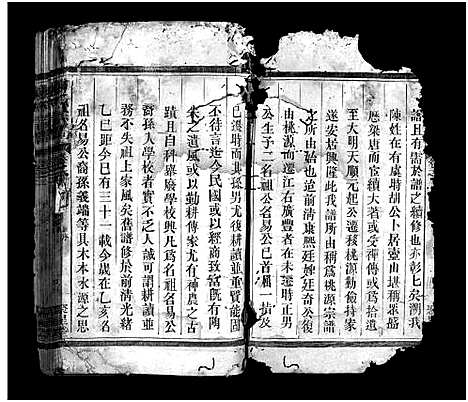 譜且有需於譜之續修也亦彰匕矣溯我
陳姓在有虞時胡公卜居宛由堪稱衆盛
歷梁唐而宦績大著或受禪傳或爲拾遺
至大明天順元起公遷移桃源勤儉持家
遂安居興隆此我譜所由稱爲桃源宗譜
之所由始也迨前清康熙廷婢廷奇公復
由桃源而遷江右廣豐者在未遷時正男
公生子二名祖公名易公已首
已遷時而其孫男尤後耕讀並重賢能固
不待言迄今民國或以經商致富旣有陶
朱之遺風或以勤耕傳家尤有神農之古
蹟且自科舉廢學校興凡爲名祖名易公
裔孫入學校者實不乏人誠可謂耕讀並
務不失祖上家風矣舊譜修於前清光緒
乙巳距今巳有三十一載今歲在乙亥名
祖名易公裔孫義端等具木本水源之思